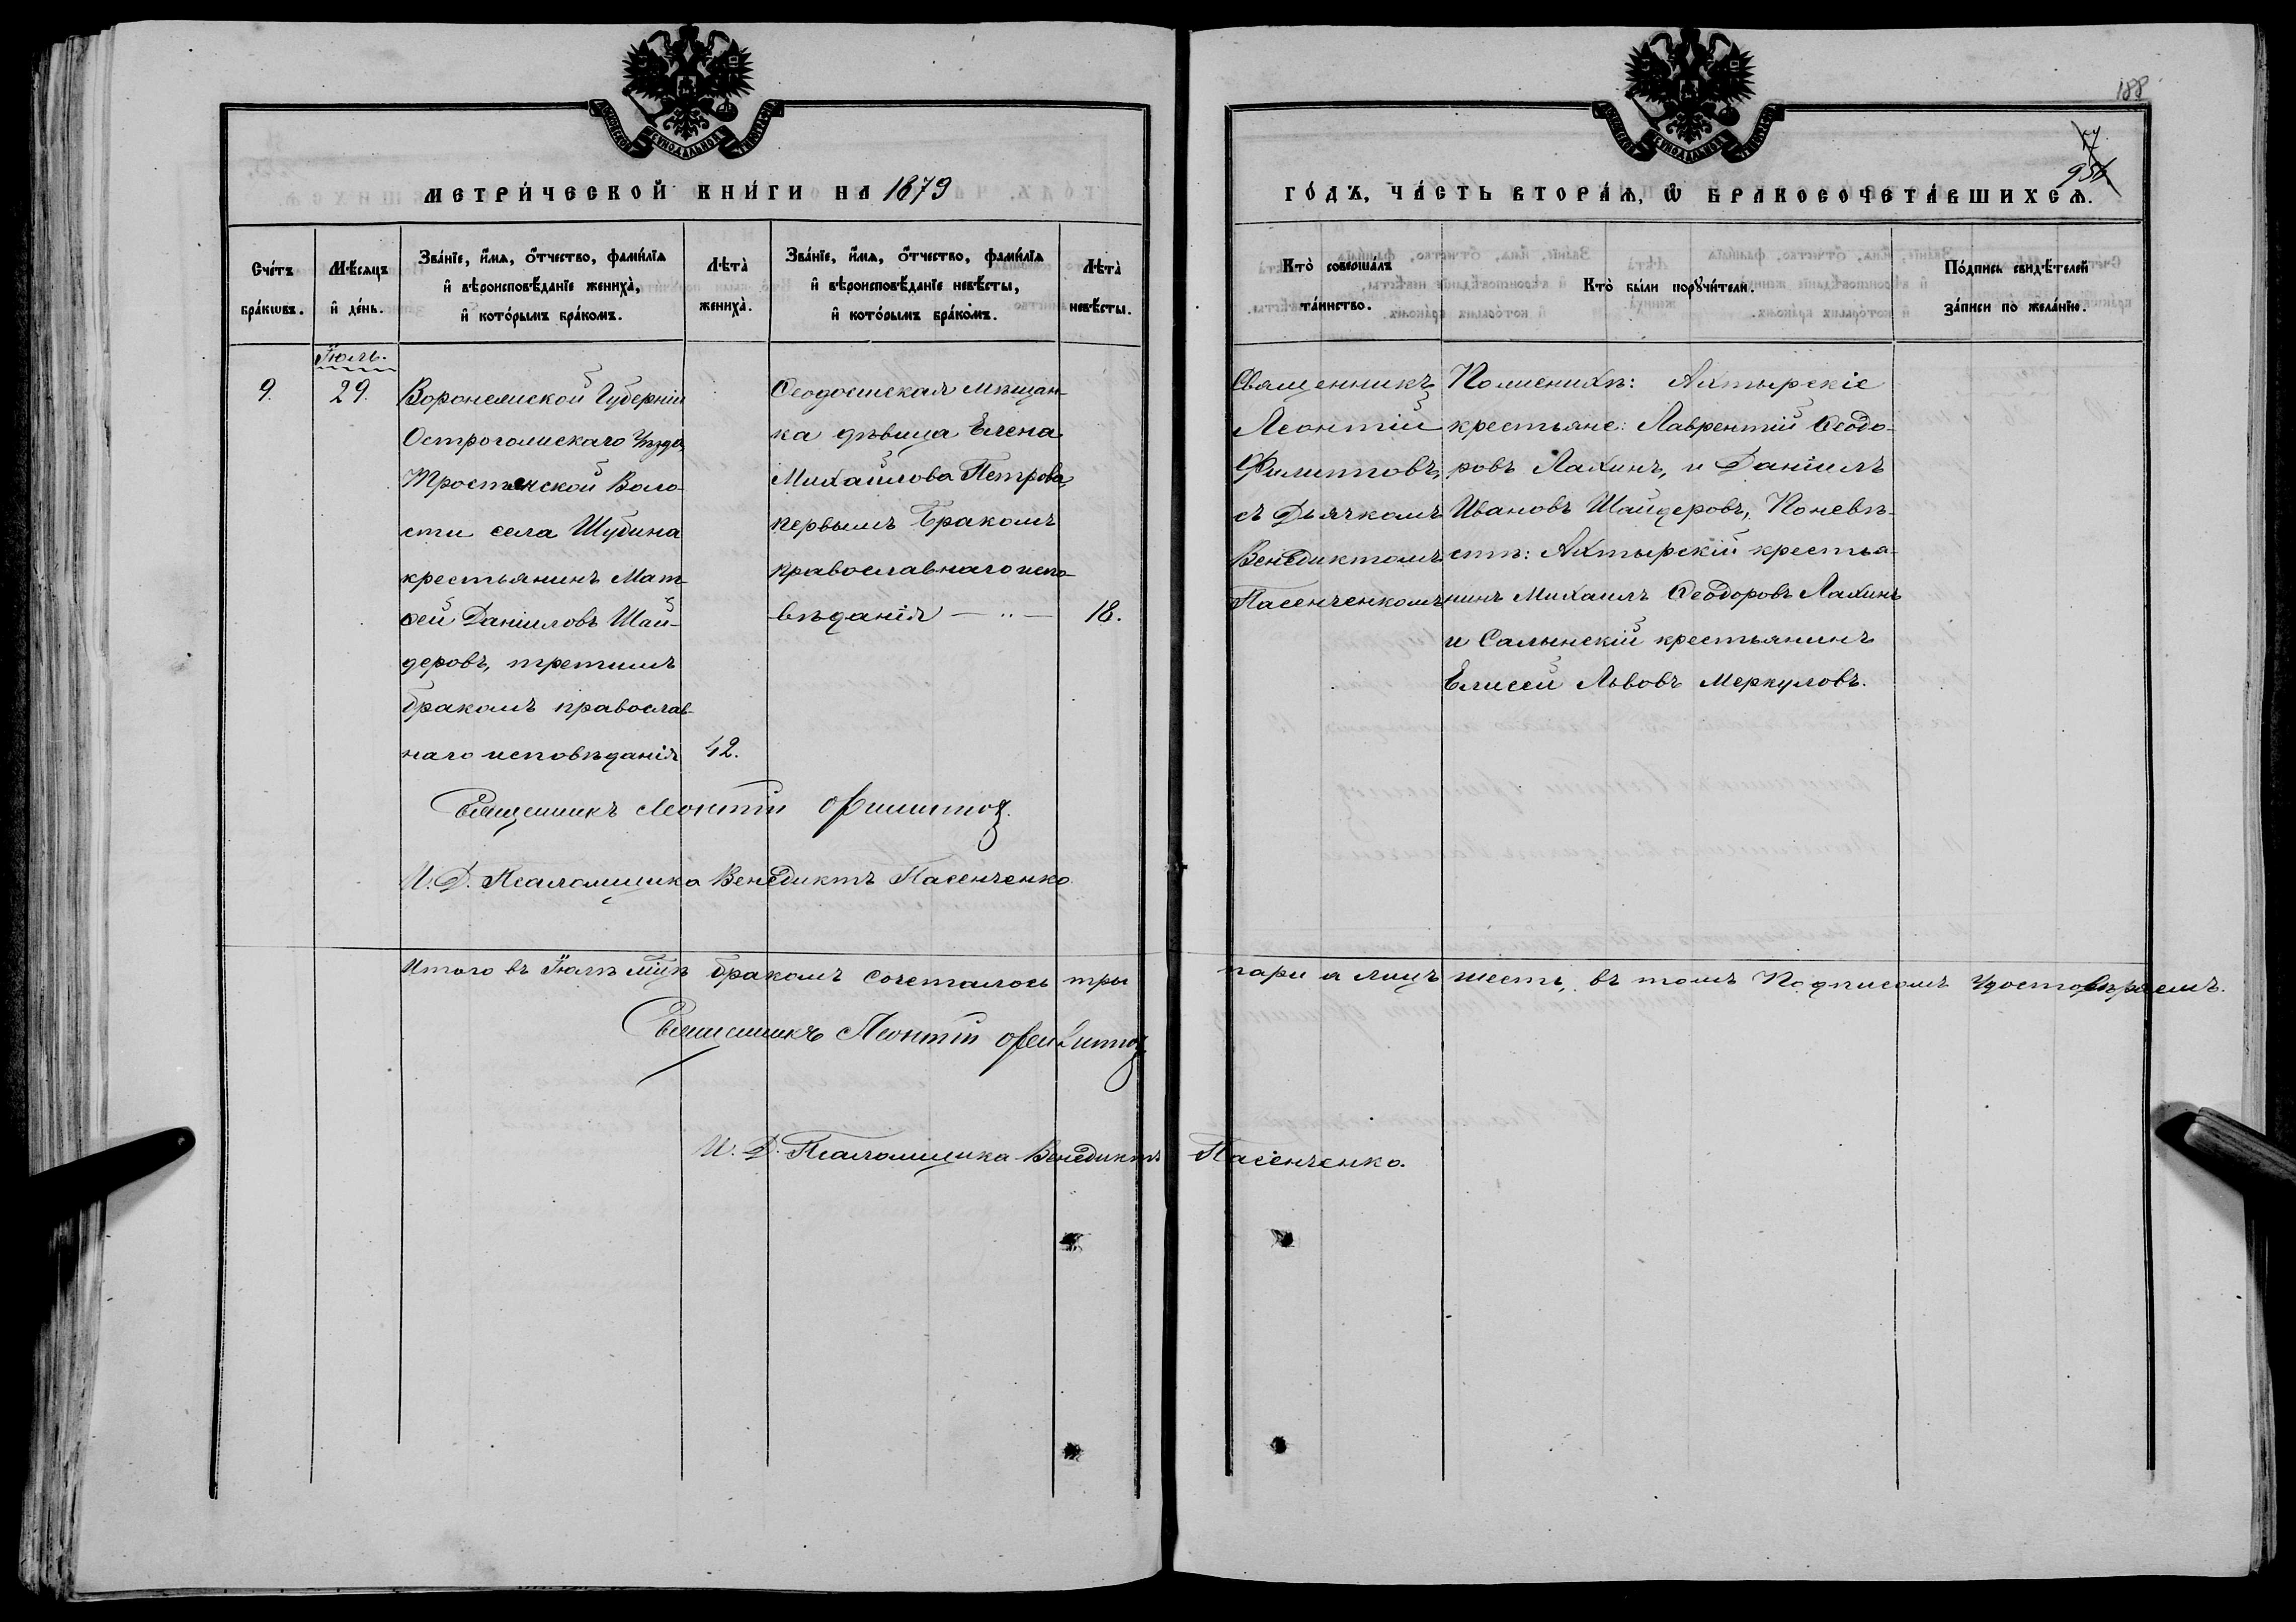 188
7
956
МОСКОВСКОЙ СѴНОДАЛЬНОЙ ТИПОГРАФІИ
МОСКОВСКОЙ СѴНОДАЛЬНОЙ ТИПОГРАФІИ
МЕТРИ́ЧЕСКОЙ КНИ́ГИ НА 1879
ГО́ДЪ, ЧА́СТЬ ВТОРА́Ѧ, Ѿ БРАКОСОЧЕТА́ВШИХСѦ.
Сче́тъ
бра́кѡвъ.
Мѣ́сѧцъ
и҆ де́нь.
Зва́нїе, и҆́мѧ, ѻ҆́тчество, фами́лїѧ
и҆ вѣроисповѣ́данїе жениха̀,
и҆ кото́рымъ бра́комъ.
Лѣта̀
жениха̀.
Зва́нїе, и҆́мѧ, ѻ҆́тчество, фами́лїѧ
и҆ вѣроисповѣ́данїе невѣ́сты,
и҆ кото́рымъ бра́комъ.
Лѣта̀
невѣ́сты.
Кто̀ соверша́лъ
та́инство.
Кто̀ бы́ли порꙋчи́тели.
По́дпись свидѣ́телей
за́писи по жела́нїю.
Іюль.
9.
29.
Воронежской Губерніи
Острогожскаго Уѣзда,
Тростянской Воло-
сти села Шубина
крестьянинъ Мат-
ѳей Даніиловъ Шай-
деровъ, третимъ
бракомъ православ-
наго исповѣданія
42.
Ѳеодосійская мѣщан-
ка дѣвица Елена
Михайлова Петрова,
первымъ бракомъ
православнаго испо-
вѣданія — „ —
18.
Священникъ
Леонтій
Филиповъ,
съ Дьячкомъ
Венедиктомъ
Пасенченкомъ
По женихѣ: Ахтырскіе
крестьяне: Лаврентій Ѳеодо-
ровъ Лахинъ, и Даніилъ
Ивановъ Шайдеровъ, По невѣ-
стѣ: Ахтырскій крестья-
нинъ Михаилъ Ѳеодоровъ Лахинъ
и Салынскій крестьянинъ
Елисей Львовъ Меркуловъ.
Священникъ Леонтій Филипов.
И. Д. Псаломщика Венедиктъ Пасенченко.
Итого въ Іюлѣ мцѣ бракомъ сочеталось три пары а лицъ шесть, въ томъ Подписомъ Удостовѣряемъ.
Священникъ Леонтій Филипов.
И. Д. Псаломщика Венедиктъ Пасенченко.